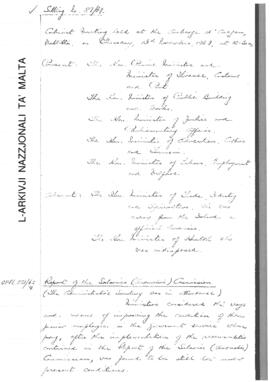 Sitting No. 89/69.
Cabinet Meeting held at the Auberge d'Aragon,
Valletta, on Thursday, 13th November, 1969, at 10.30
Present: The Hon. Prime Minister and
Minister of Finance, Customs
and Port
The Hon. Minister of Public Building
and Works.
The Hon. Minister of Justice and
Parliamentary Affairs.
The Hon. Minister of Education, Culture
and Tourism
The Hon. Minister of Labour, Employment
and Welfare.
Absent: The Hon. Minister of Trade, Industry
and Agriculture, who was
away from the Island on
official business.
The Hon. Minister of Health who
was indisposed.
L-ARKIVJI NAZZJONALI TA' MALTA
Report of the Salaries (Anomalies) Commission
(The Commission's Secretary was in attendance)
Ministers considered the ways
and means of improving the condition of those
junior employees in the government service whose
pay, after the implementation of the recommendations
contained in the Report of the Salaries (Anomalies)
Commission, was found to be still low under
present conditions.